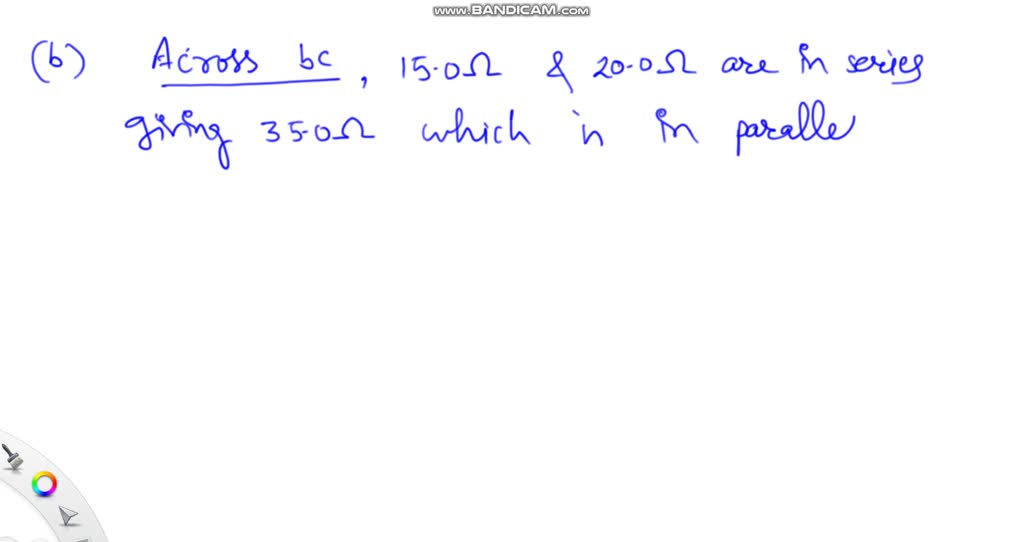 www.BANDICAM.com
(b) Across bc, 15.0Ω & 20.0Ω are in series
giving 35.0Ω which is in paralle